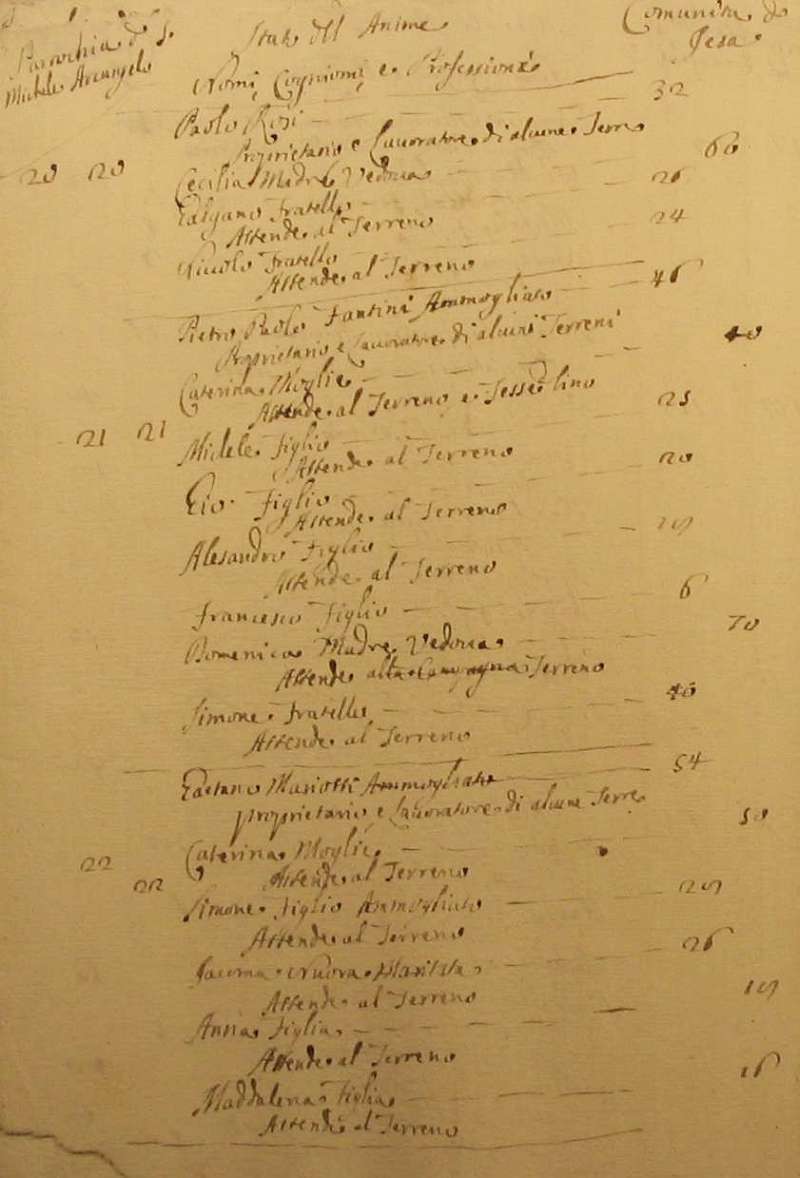 Parochia di S.
Michele Arcangelo
Stato dell Anime
Comunità di
Jesa
Nomi, Cogniomi, e Professioni
Paolo Rosi 32
Proprietario e Lauoratore di alcune Terre
20 20 Cecilia Madre Vedoua 60
Galgano Fratello 26
Attende al Terreno
Niccolo Fratello 24
Attende al Terreno
Pietro Paolo Fantini Ammogliato 46
Proprietario e Lauoratore di alcuni Terreni
Caterina Moglie 40
Attende al Terreno e Tesse lino
21 21 Michele Figlio 25
Attende al Terreno
Gio. Figlio 20
Attende al Terreno
Alesandro Figlio 19
Attende al Terreno
Francesco Figlio 6
Domenica Madre Vedoua 70
Attende alla Campagna Terreno
Simone Fratello 40
Attende al Terreno
Gaetano Mariotti Ammogliato 54
proprietario e Lauoratore di alcune Terre
22 22 Caterina Moglie 50
Attende al Terreno
Simone Figlio Ammogliato 29
Attende al Terreno
Nuora Maritata 26
Attende al Terreno
Anna Figlia 19
Attende al Terreno
Maddalena Figlia 16
Attende al Terreno